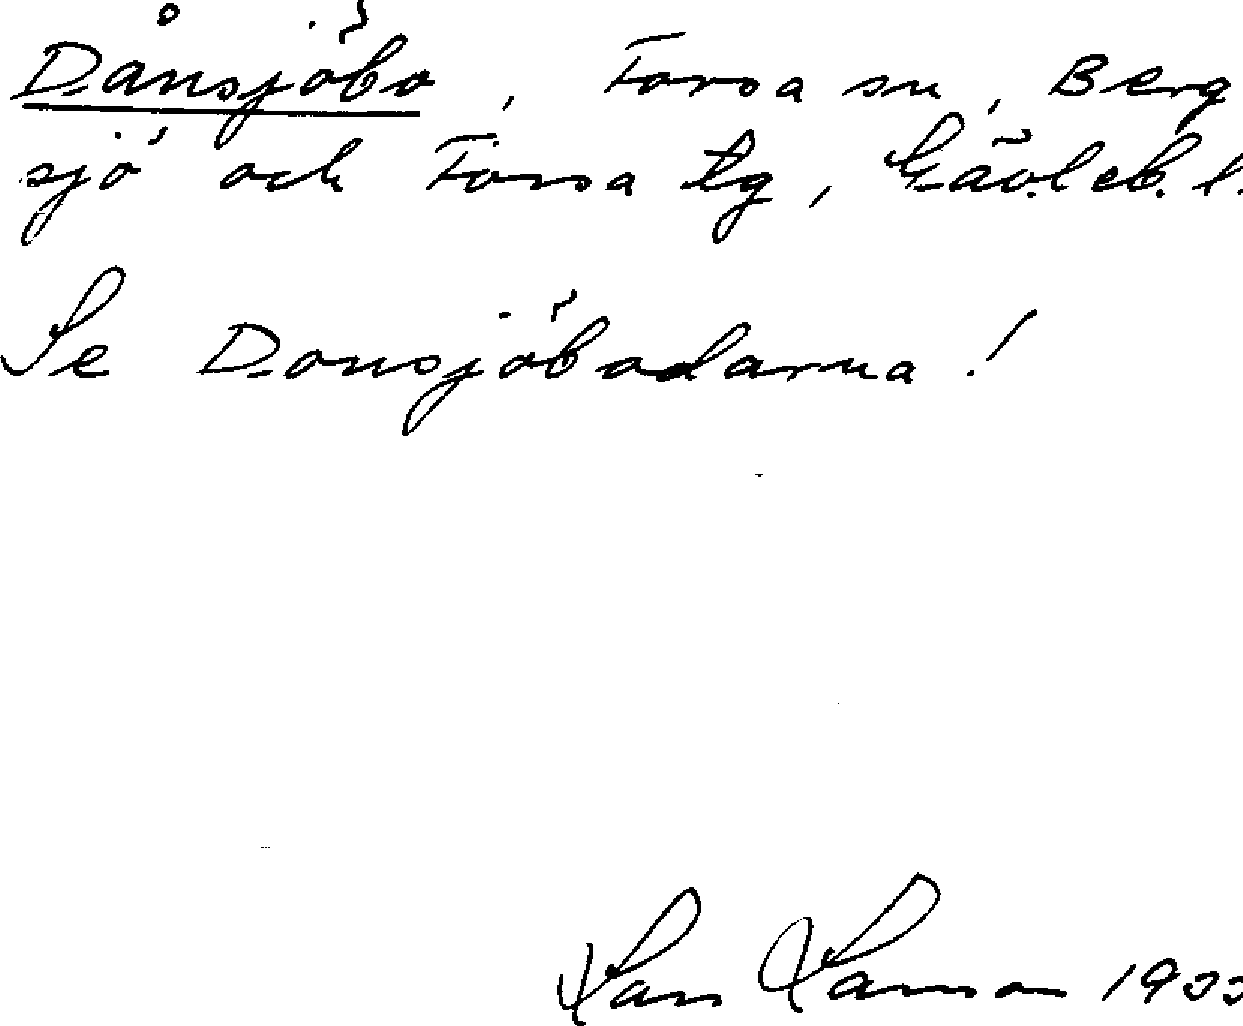 Dånsjöbo, Forsa sn, Berg
sjö och Forsa tg, Gävleb. l.
Se Donsjöbodarna!
Lars Larsson 1933